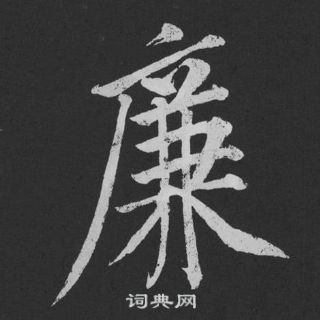 廉
词典网